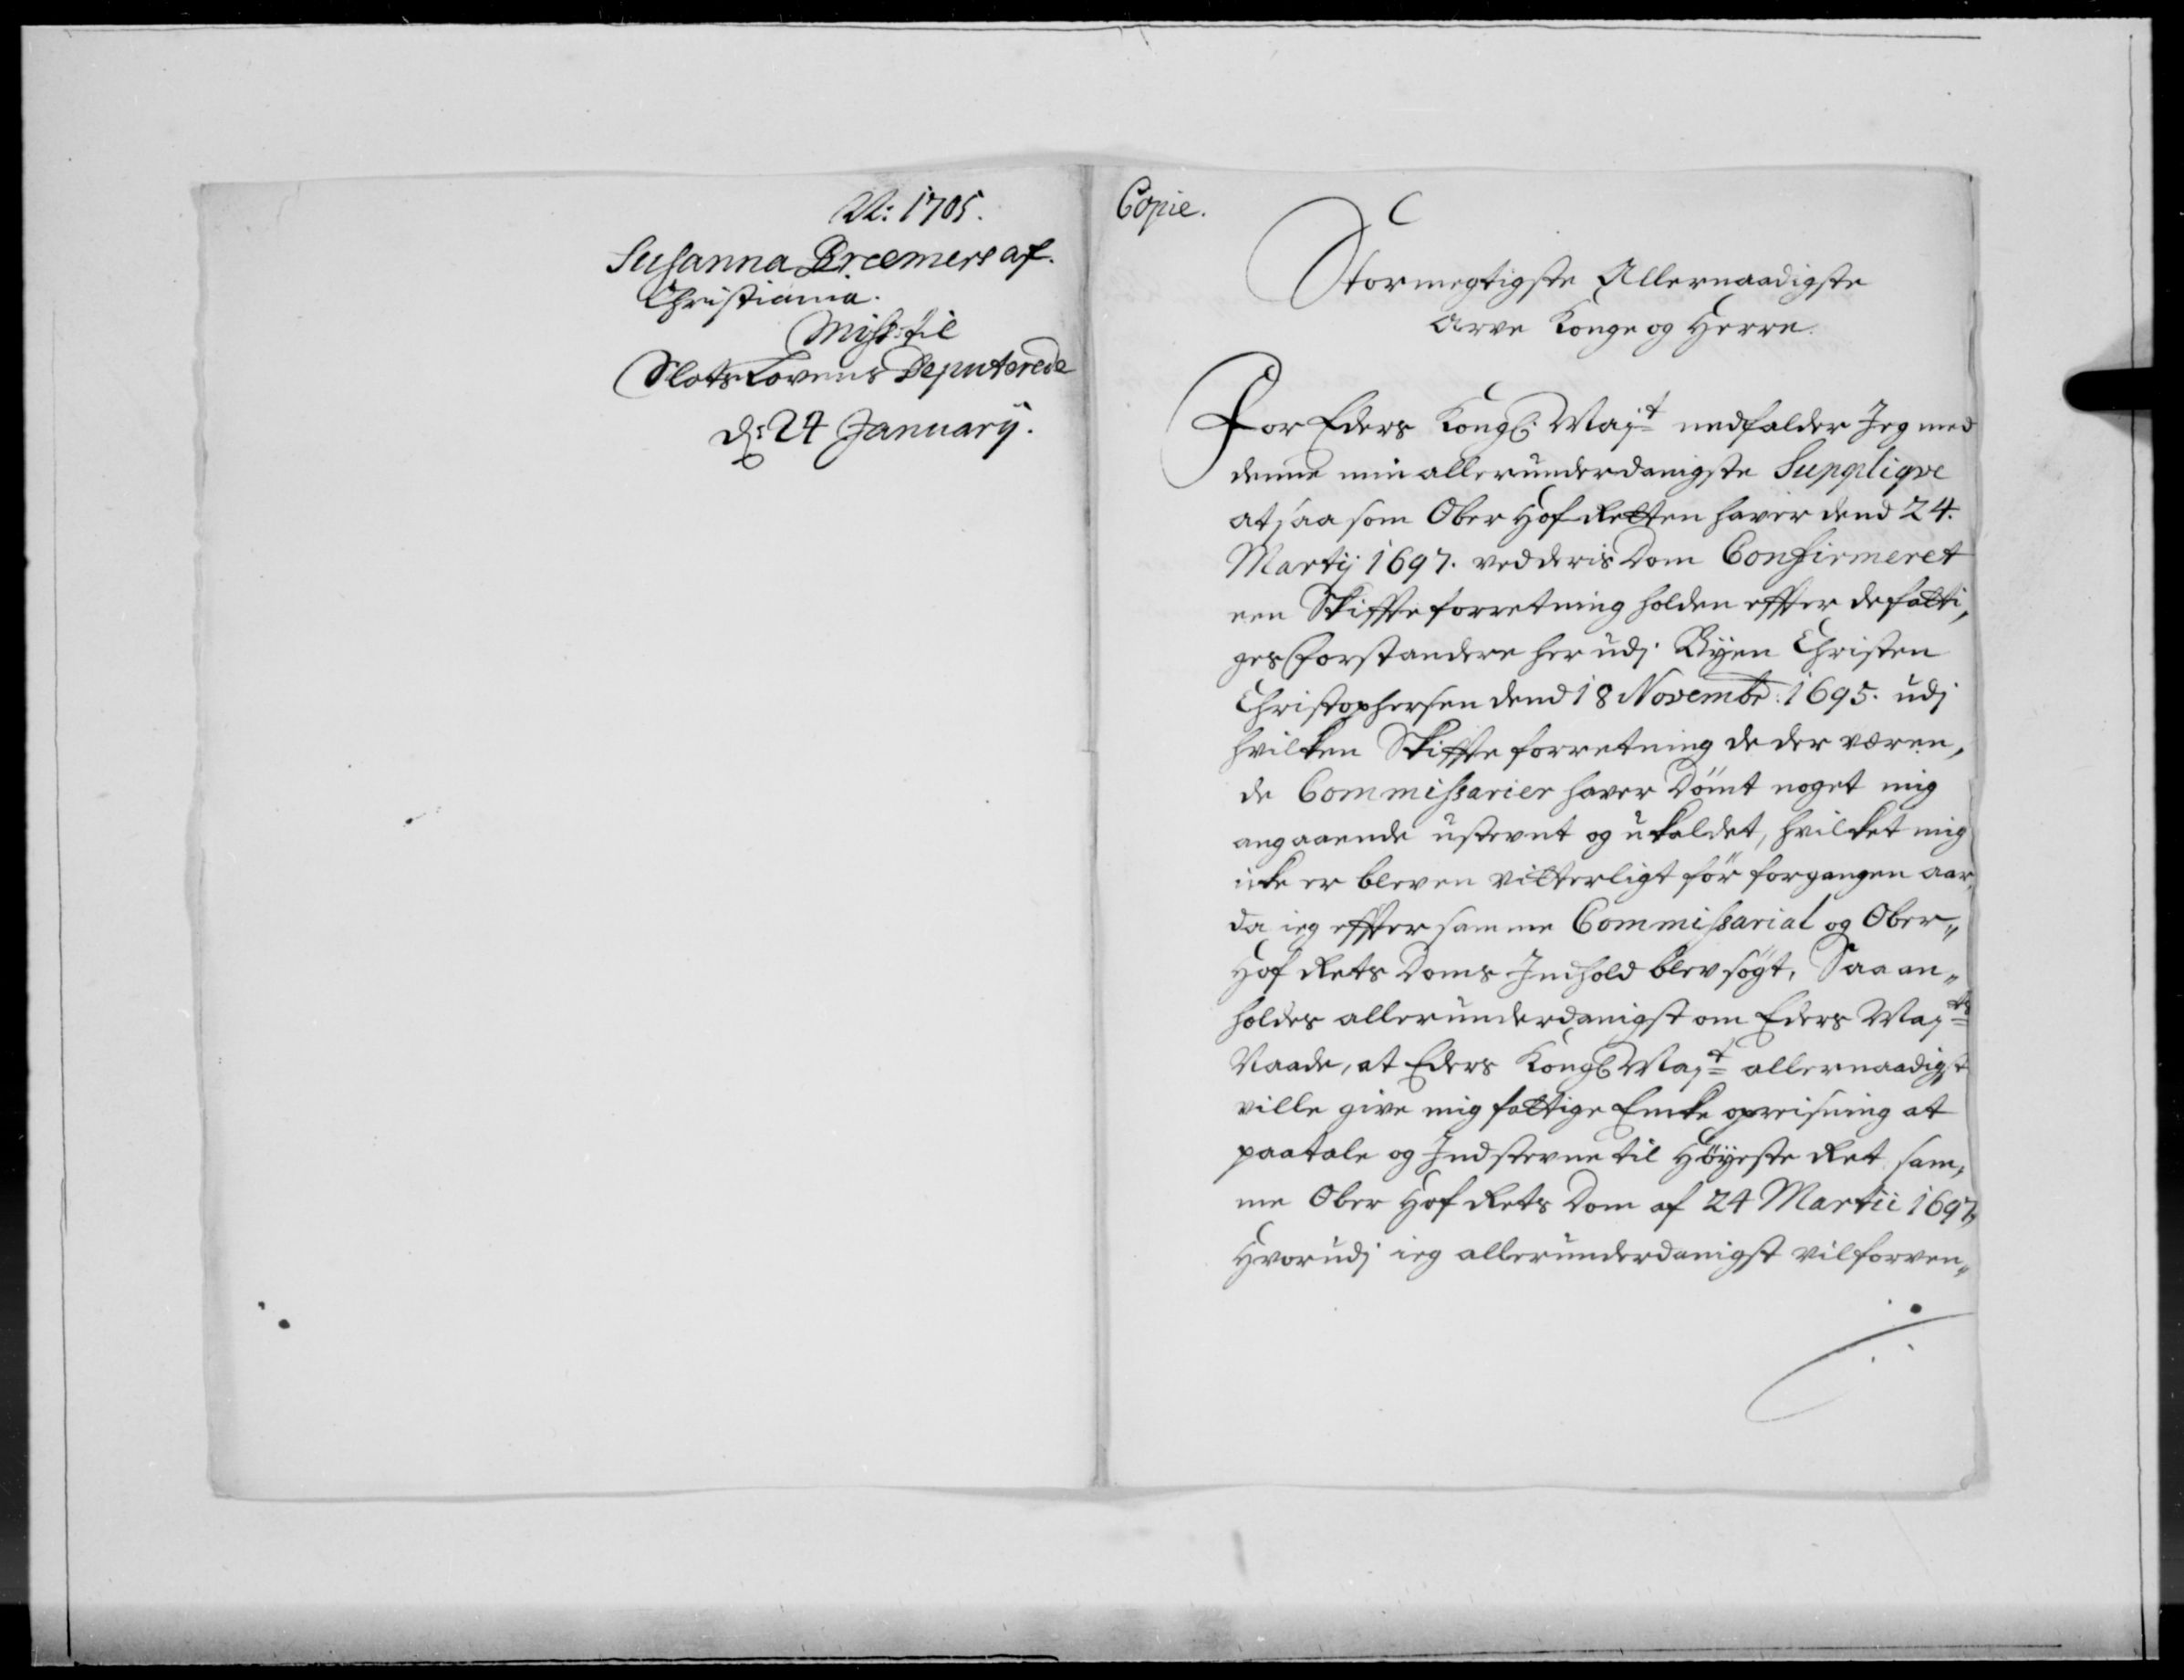 N: 1705.
Susanna Breemers af
Christiania.
Miss: til
SlotsLovens Deputerede
D: 24 January.
Copie.
Stormegtigste Allernaadigste
Arve Konge og Herre.
For Eders Kongl: Maj:t nedfalder Jeg med
denne min allerunderdanigste Suppliqve
at saasom Ober Hof Retten haver dend 24.
Martij 1697. ved deris Dom Confirmeret
een Skiffte forretning holden effter de fatti,
ges forstandere her udj Byen Christen
Christophersen dend 18 Novembr: 1695. udj
hvilken Skiffte forretning de der væren,
de Commissarier haver Dömt noget mig
angaaende ustevnt og ukaldet, hvilket mig
icke er bleven vitterligt för forgangen aar,
da ieg effter samme Commissarial og Ober„
Hof Rets Doms Indhold blev søgt, Saa an„
holdes allerunderdanigst om Eders Maj:ts
Naade, at Eders Kongl Maj:t allernaadigst
ville give mig fattige Encke opreisning at
paatale og Indstevne til Höyeste Ret sam,
me Ober Hof Rets Dom af 24 Martii 1697,
Hvorudj ieg allerunderdanigst vil forven„